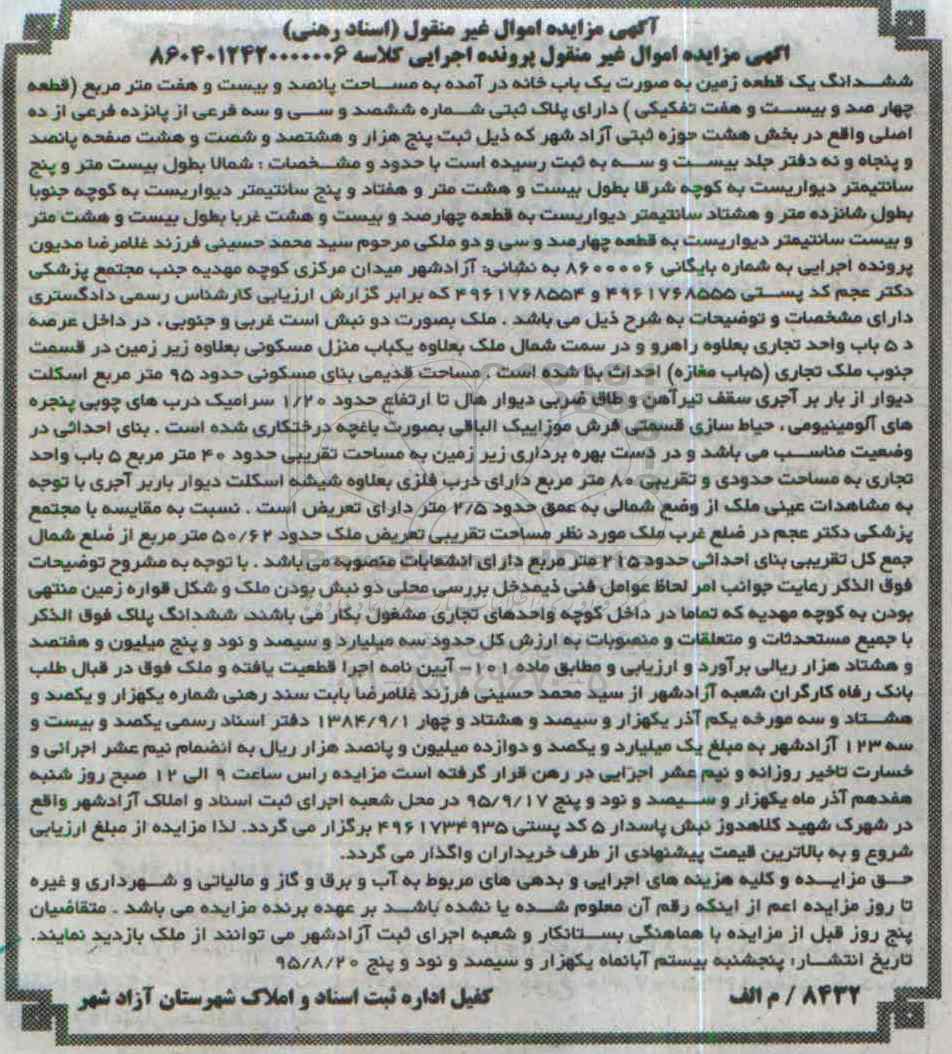 آگهی مزایده اموال غیر منقول (اسناد رهنی)
آگهی مزایده اموال غیر منقول پرونده اجرایی کلاسه ۸۶۰۴۰۱۲۴۲۰۰۰۰۰۰۶
ششدانگ یک قطعه زمین به صورت یک باب خانه در آمده به مساحت پانصد و بیست و هفت متر مربع (قطعه
چهار صد و بیست و هفت تفکیکی ) دارای پلاک ثبتی شماره ششصد و سی و سه فرعی از پانزده فرعی از ده
اصلی واقع در بخش هشت حوزه ثبتی آزاد شهر که ذیل ثبت پنج هزار و هشتصد و شصت و هشت صفحه پانصد
و پنجاه و نه دفتر جلد بیست و سه به ثبت رسیده است با حدود و مشخصات : شمالا بطول بیست متر و پنج
سانتیمتر دیواریست به کوچه شرقا بطول بیست و هشت متر و هفتاد و پنج سانتیمتر دیواریست به کوچه جنوبا
بطول شانزده متر و هشتاد سانتیمتر دیواریست به قطعه چهارصد و بیست و هشت غربا بطول بیست و هشت متر
و بیست سانتیمتر دیواریست به قطعه چهارصد و سی و دو ملکی مرحوم سید محمد حسینی فرزند غلامرضا مدیون
پرونده اجرایی به شماره بایگانی ۸۶۰۰۰۰۶ به نشانی: آزادشهر میدان مرکزی کوچه مهدیه جنب مجتمع پزشکی
دکتر عجم کد پستی ۴۹۶۱۷۶۸۵۵۵ و ۴۹۶۱۷۶۸۵۵۴ که برابر گزارش ارزیابی کارشناس رسمی دادگستری
دارای مشخصات و توضیحات به شرح ذیل می باشد . ملک بصورت دو نبش است غربی و جنوبی ، در داخل عرصه
د ۵ باب واحد تجاری بعلاوه راهرو و در سمت شمال ملک بعلاوه یکباب منزل مسکونی بعلاوه زیر زمین در قسمت
جنوب ملک تجاری (۵باب مغازه) احداث بنا شده است . مساحت قدیمی بنای مسکونی حدود ۹۵ متر مربع اسکلت
دیوار از بار بر آجری سقف تیرآهن و طاق ضربی دیوار هال تا ارتفاع حدود ۱/۲۰ سرامیک درب های چوبی پنجره
های آلومینیومی ، حیاط سازی قسمتی فرش موزاییک الباقی بصورت باغچه درختکاری شده است . بنای احداثی در
وضعیت مناسب می باشد و در دست بهره برداری زیر زمین به مساحت تقریبی حدود ۴۰ متر مربع ۵ باب واحد
تجاری به مساحت حدودی و تقریبی ۸۰ متر مربع دارای درب فلزی بعلاوه شیشه اسکلت دیوار باربر آجری با توجه
به مشاهدات عینی ملک از وضع شمالی به عمق حدود ۲/۵ متر دارای تعریض است . نسبت به مقایسه با مجتمع
پزشکی دکتر عجم در ضلع غرب ملک مورد نظر مساحت تقریبی تعریض ملک حدود ۵۰/۶۲ متر مربع از ضلع شمال
جمع کل تقریبی بنای احداثی حدود ۲۱۵ متر مربع دارای انشعابات منصوبه می باشد . با توجه به مشروح توضیحات
فوق الذکر رعایت جوانب امر لحاظ عوامل فنی ذیمدخل بررسی محلی دو نبش بودن ملک و شکل قواره زمین منتهی
بودن به کوچه مهدیه که تماما در داخل کوچه واحدهای تجاری مشغول بکار می باشند. ششدانگ پلاک فوق الذکر
با جمیع مستحدثات و متعلقات و منصوبات به ارزش کل حدود سه میلیارد و سیصد و نود و پنج میلیون و هفتصد
و هشتاد هزار ریالی برآورد و ارزیابی و مطابق ماده ۱۰۱- آیین نامه اجرا قطعیت یافته و ملک فوق در قبال طلب
بانک رفاه کارگران شعبه آزادشهر از سید محمد حسینی فرزند غلامرضا بابت سند رهنی شماره یکهزار و یکصد و
هشتاد و سه مورخه یکم آذر یکهزار و سیصد و هشتاد و چهار ۱۳۸۴/۹/۱ دفتر اسناد رسمی یکصد و بیست و
سه ۱۲۳ آزادشهر به مبلغ یک میلیارد و یکصد و دوازده میلیون و پانصد هزار ریال به انضمام نیم عشر اجرائی و
خسارت تاخیر روزانه و نیم عشر اجرایی در رهن قرار گرفته است مزایده راس ساعت ۹ الی ۱۲ صبح روز شنبه
هفدهم آذر ماه یکهزار و سیصد و نود و پنج ۹۵/۹/۱۷ در محل شعبه اجرای ثبت اسناد و املاک آزادشهر واقع
در شهرک شهید کلاهدوز نبش پاسدار ۵ کد پستی ۴۹۶۱۷۳۴۹۳۵ برگزار می گردد. لذا مزایده از مبلغ ارزیابی
شروع و به بالاترین قیمت پیشنهادی از طرف خریداران واگذار می گردد.
حق مزایده و کلیه هزینه های اجرایی و بدهی های مربوط به آب و برق و گاز و مالیاتی و شهرداری و غیره
تا روز مزایده اعم از اینکه رقم آن معلوم شده یا نشده باشد بر عهده برنده مزایده می باشد . متقاضیان
پنج روز قبل از مزایده با هماهنگی بستانکار و شعبه اجرای ثبت آزادشهر می توانند از ملک بازدید نمایند.
تاریخ انتشار: پنجشنبه بیستم آبانماه یکهزار و سیصد و نود و پنج ۹۵/۸/۲۰
۸۴۳۲ / م الف
کفیل اداره ثبت اسناد و املاک شهرستان آزاد شهر